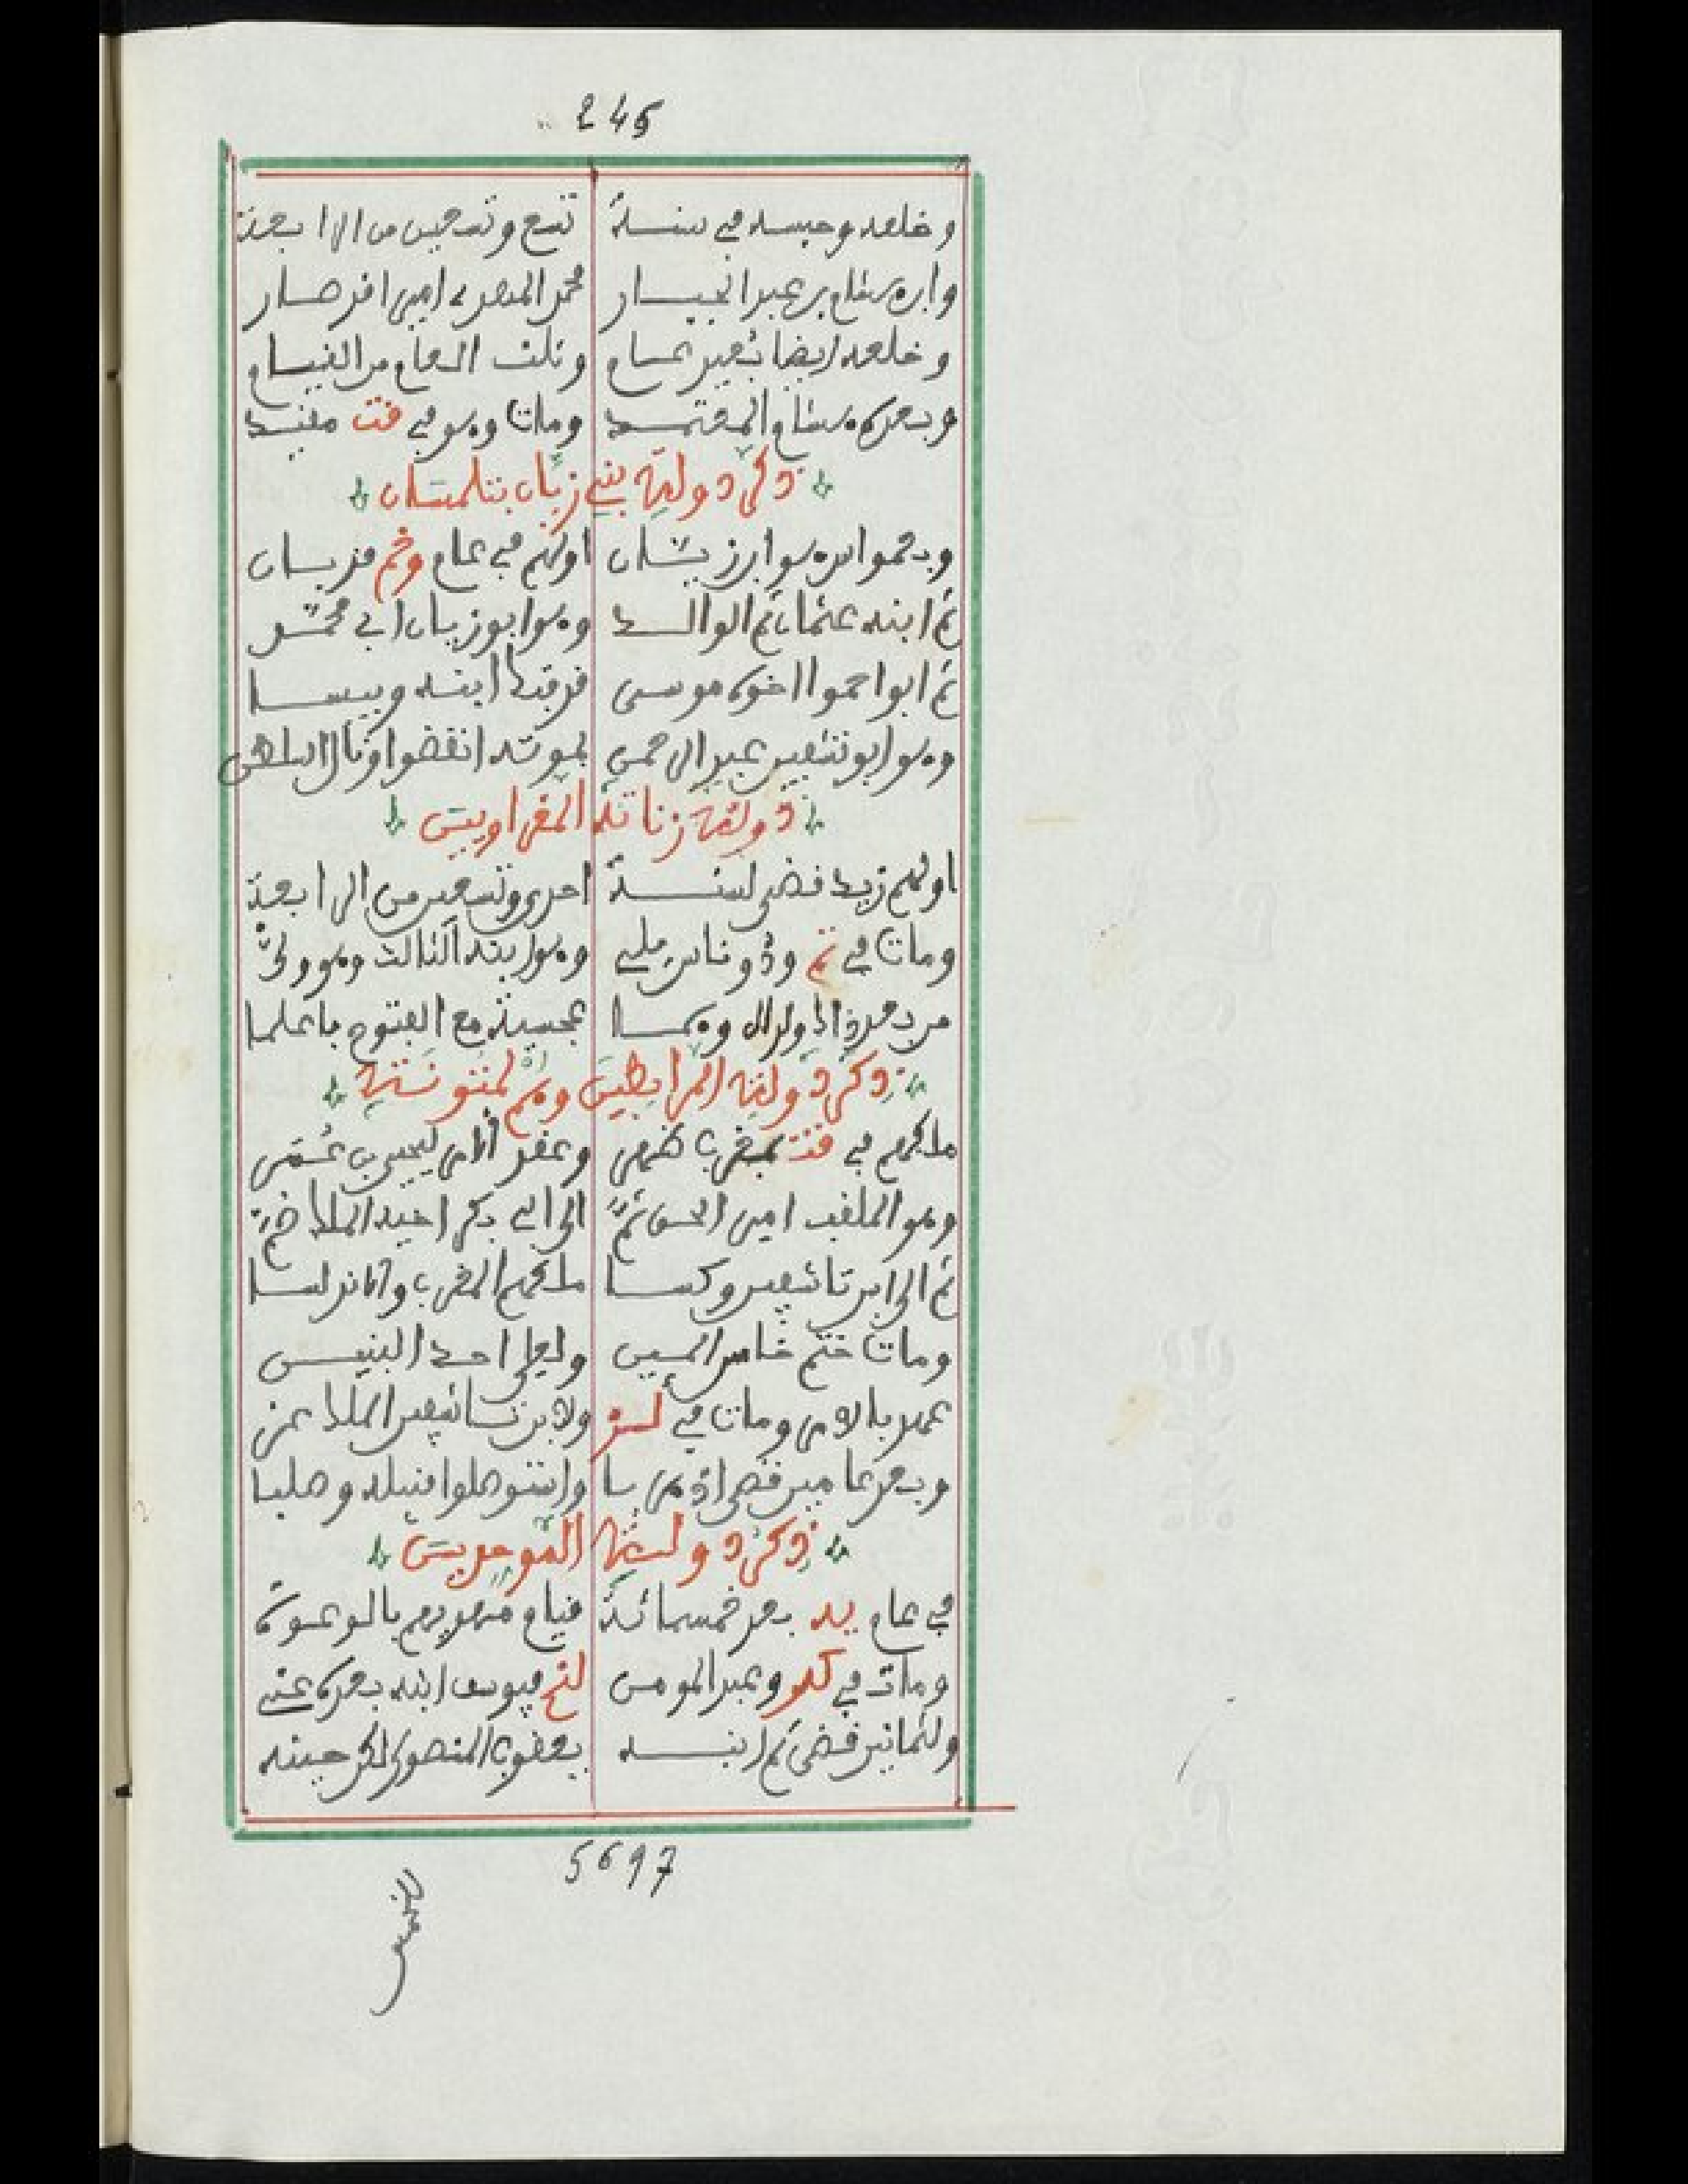 245
وخلعه وحبسه في سنة تسع وتسعين من الرابعة
وابن هشام بن عبد الجبار محمد المهدي امير اقد صار
وخلعه ايضا بعيد عام وثلث العام من القيام
وبعده هشام المعتمد ومات وهو في فت مفيد
ذكر دولة بني زيان بتلمسان
اولهم في عام وخم قد بان
ثم ابنه عثمان ثم الوالد وهو ابو زيان ابي محمد
ثم ابوا حموا اخوه موسى ابنه وبيسا
وهو ابو تشفين عبد الرحمن بموته انقضوا وكال الباطن
دولة زناتة المغراويين
اولهم زيد قضى لسنة احدى وتسعين من الرابعة
ومات في تم ودوناس ملي وهو ابنه الثالث وهو ولي
من بعد ذا الاولاد وهما عجيسة مع الفتوح فاعلما
ذكر دولة المرابطين وهم لمتونة
ملكهم في فت بمغرب ظهر وعقد الامر ليحيى بن عمر
وهو الملقب امير الحق ثم الى ابي بكر اخيه الملك ضم
ثم الى ابن تاشفين وكسا ملكهم المغرب والاندلسا
ومات ختم خامس المين وله علي احد البنين
عهد بالامر ومات في لز ولابن تاشفين الملك عز
وبعد عامين قضى اذ هربا وانتوصلوا قتيله وصلبا
ذكر دولة الموحدين
في عام يد بعد خمسمائة قيام مهديهم بالدعوة
ومات في كد وعبد المومن لنح فيوسف ابنه بعده عني
ولثمانين قضى ثم ابنه يعقوب المنصور اذكر حينه
5697